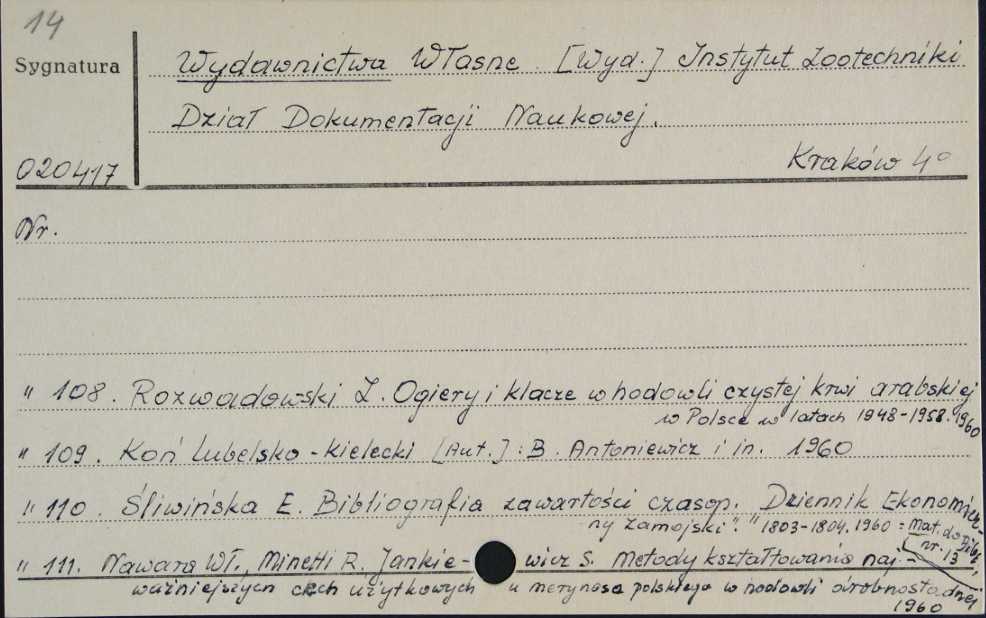 14
Sygnatura
Wydawnictwa Własne. [Wyd.] Instytut Zootechniki
Dział Dokumentacji Naukowej.
020417
Kraków 4°
Nr.
" 108. Rozwadowski Z. Ogiery i klacze w hodowli czystej krwi arabskiej
w Polsce w latach 1948-1958. 1960
" 109. Koń Lubelsko-kielecki [Aut.]: B. Antoniewicz i in. 1960
" 110. Śliwińska E. Bibliografia zawartości czasop. "Dziennik Ekonomicz-
ny Zamojski". 1803-1804. 1960 = Mat. do Bibl.,
nr. 13
" 111. Nawara Wł., Minetti R. Jankie- wicz S. Metody kształtowania naj-
ważniejszych cech użytkowych u merynosa polskiego w hodowli
1960